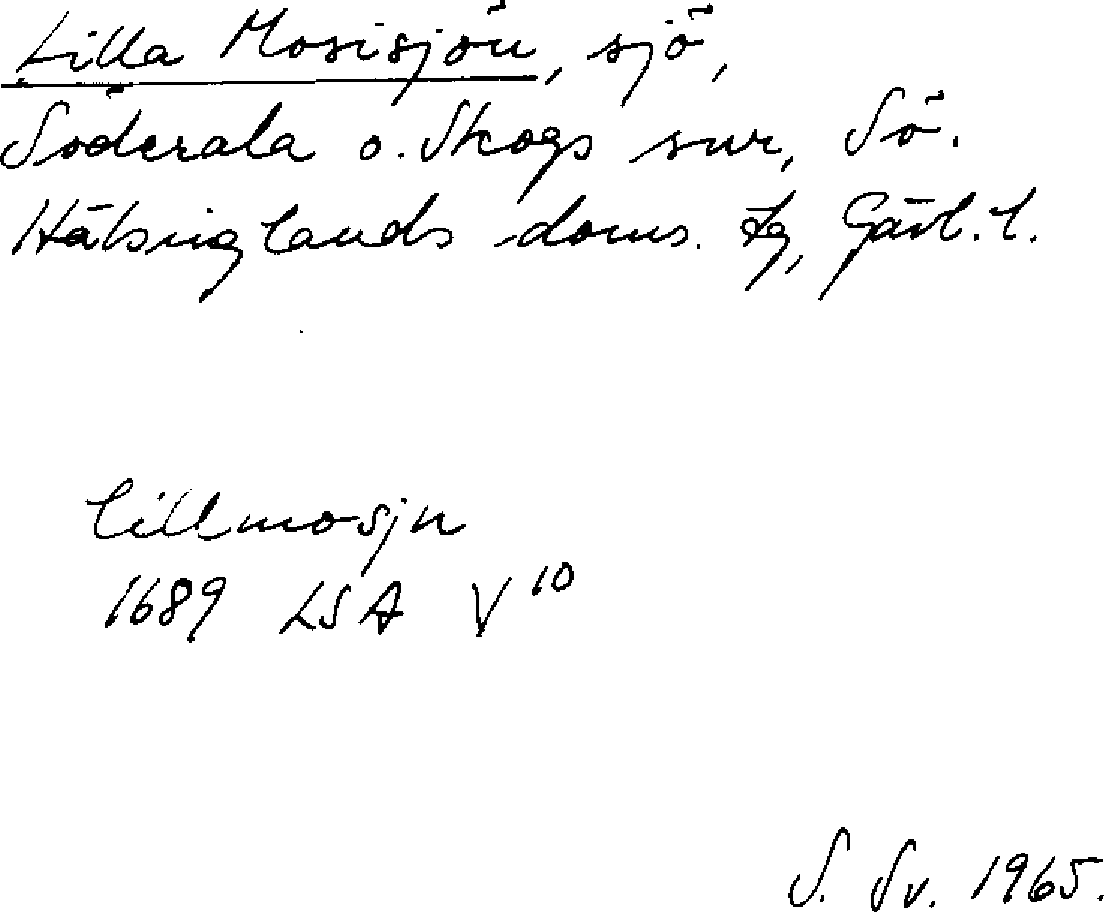 Lilla Mosisjön, sjö,
Söderala o. Skogs snr, Sö.
Hälsinglands doms. tg, Gävl. l.
lillmosjn
1689 LSA V 10
S. Sv. 1965.